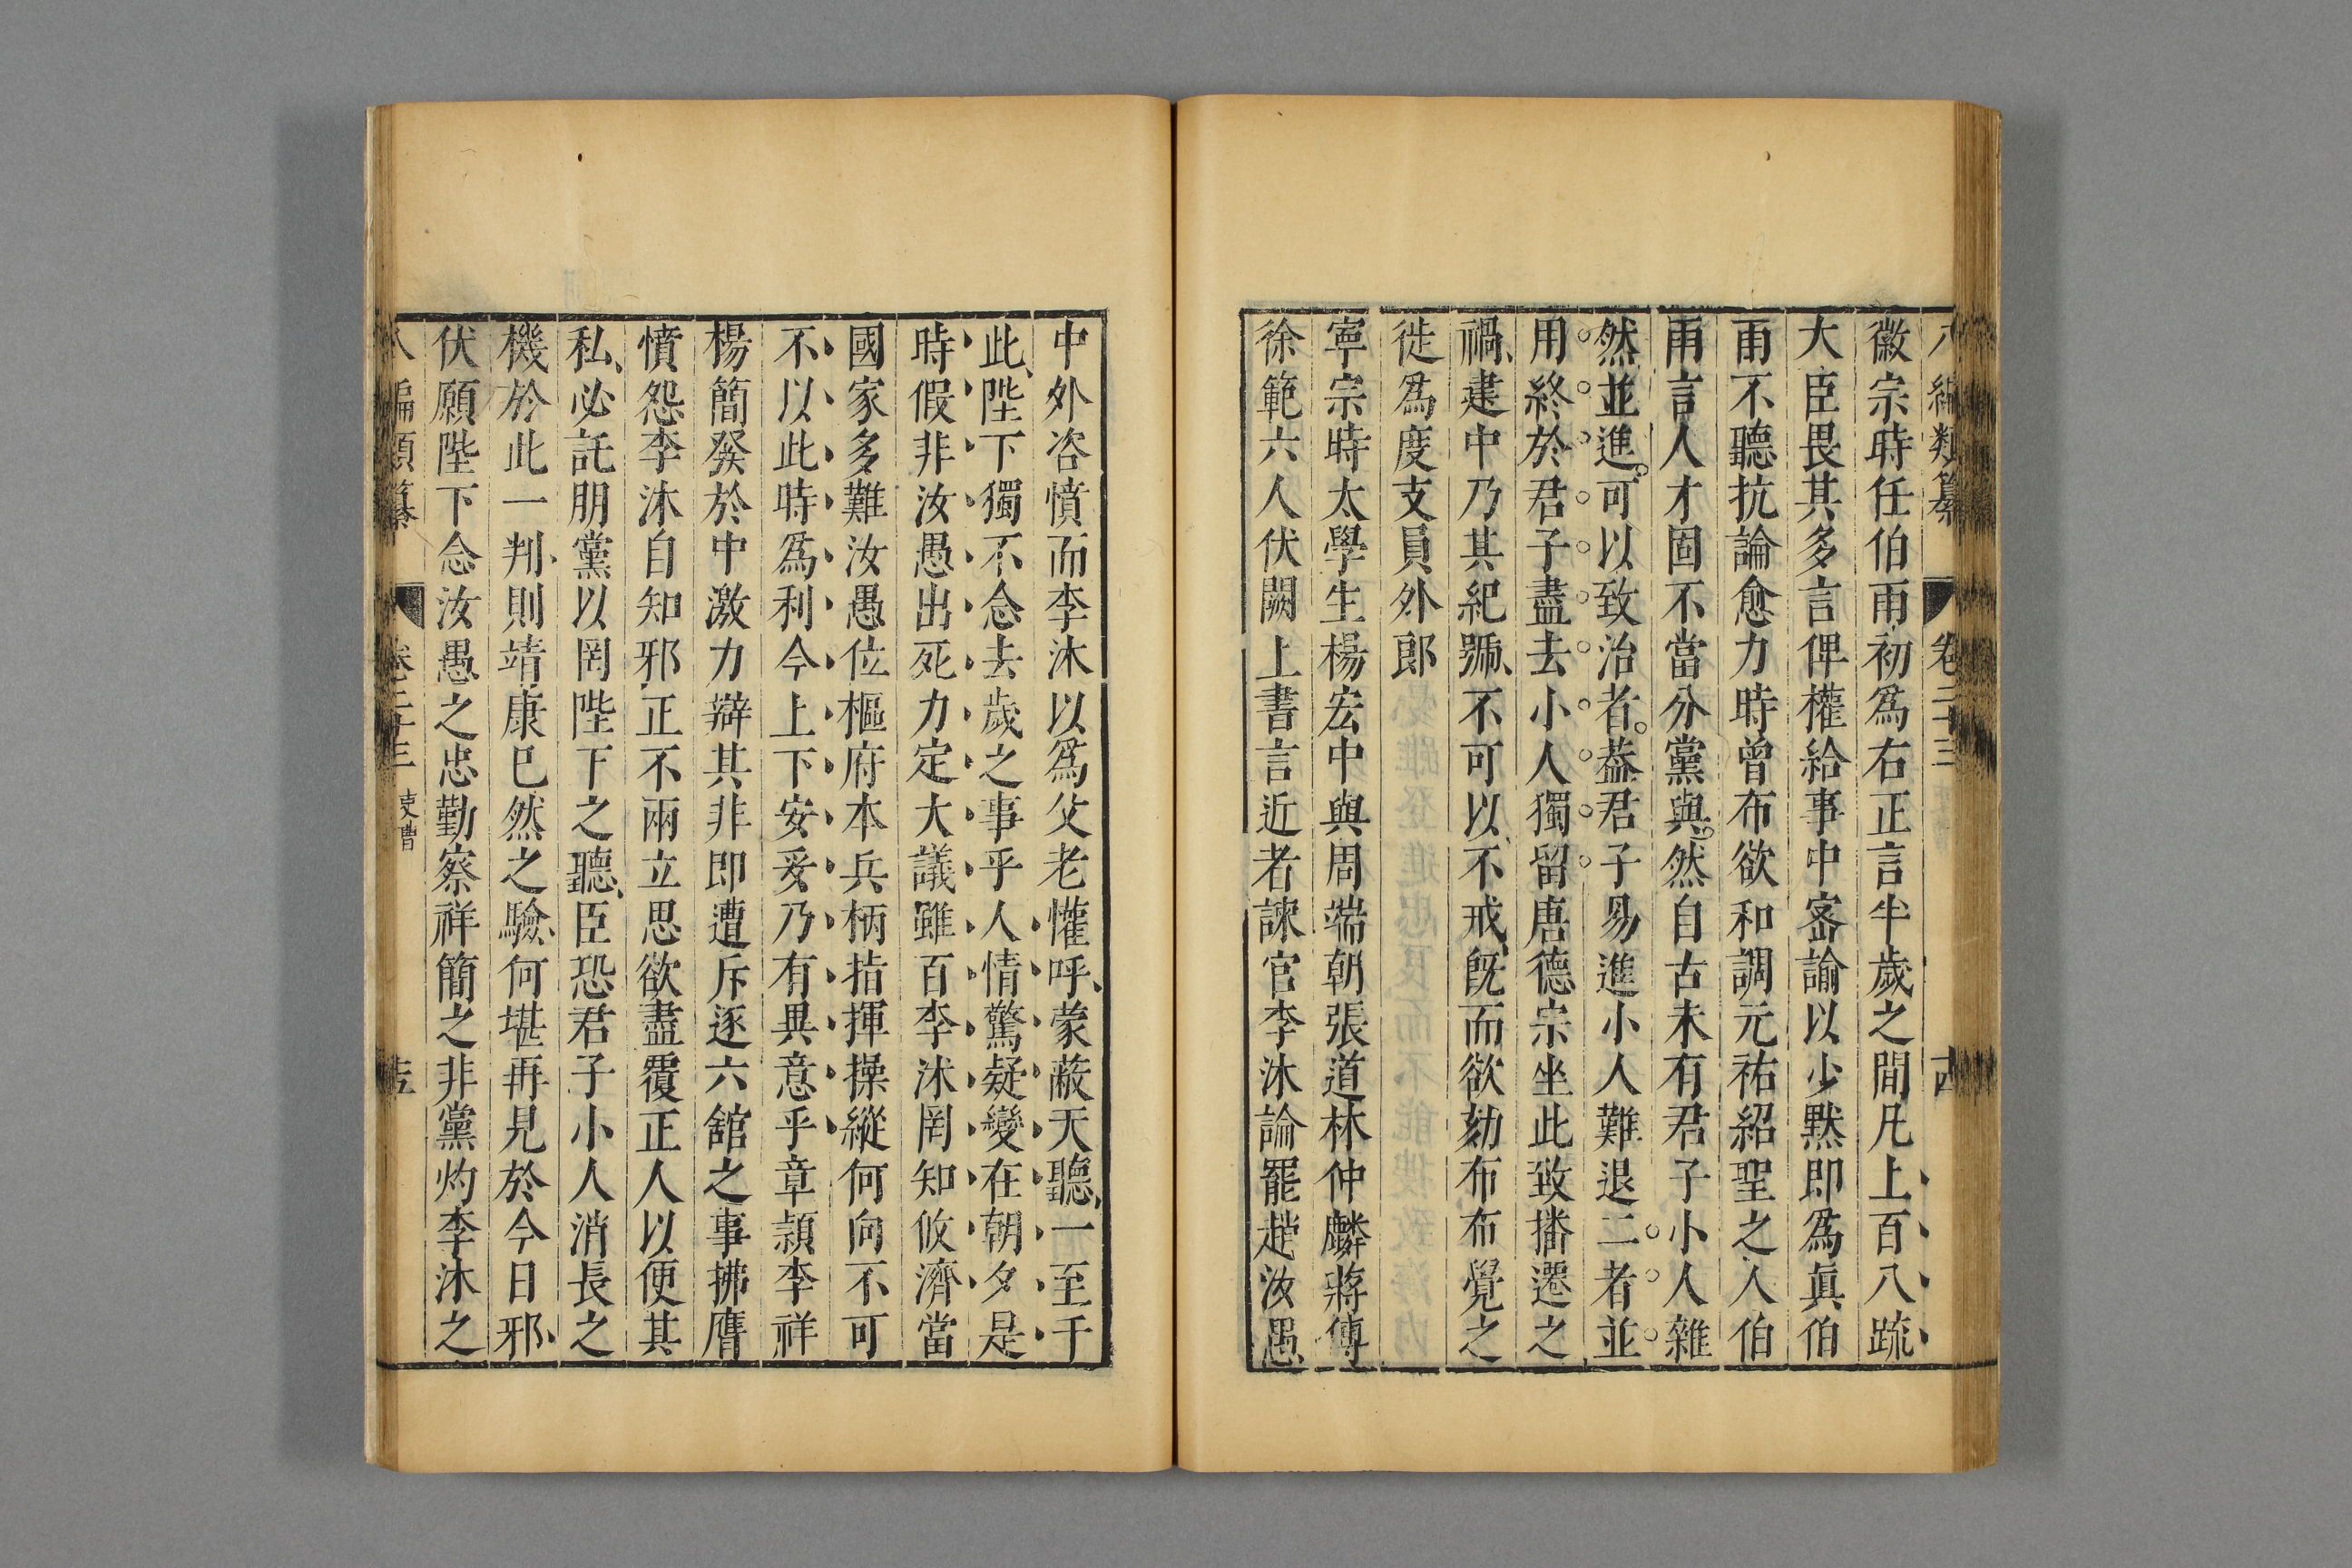 八編類纂 卷二十三 古
徽宗時任伯雨初爲右正言半歲之間凡上百八䟽
大臣畏其多言俾權給事中宻諭以少默即爲眞伯
雨不聽抗論愈力時曾布欲和調元祐紹聖之人伯
雨言人才固不當分黨與然自古未有君子小人雜
然並進可以致治者葢君子易進小人難退二者並
用終於君子盡去小人獨留唐德宗坐此致播遷之
禍建中乃其紀號不可以不戒旣而欲劾布布覺之
徙爲度支員外郎
寧宗時太學生楊宏中與周端朝張道林仲麟蔣傅
徐範六人伏闕上書言近者諫官李沐論罷趙汝愚
中外咨憤而李沐以爲父老懽呼蒙蔽天聽一至于
此陛下獨不念去歲之事乎人情驚疑變在朝夕是
時假非汝愚出死力定大議雖百李沐罔知攸濟當
國家多難汝愚位樞府本兵柄指揮操縱何向不可
不以此時爲利今上下安妥乃有異意乎章頴李祥
楊簡發於中激力辯其非即遭斥逐六舘之事拂膺
憤怨李沐自知邪正不兩立思欲盡覆正人以便其
私必託朋黨以罔陛下之聽臣恐君子小人消長之
機於此一判則靖康已然之驗何堪再見於今日邪
伏願陛下念汝愚之忠勤察祥簡之非黨灼李沐之
八編類纂 卷二十三 吏曹 十五